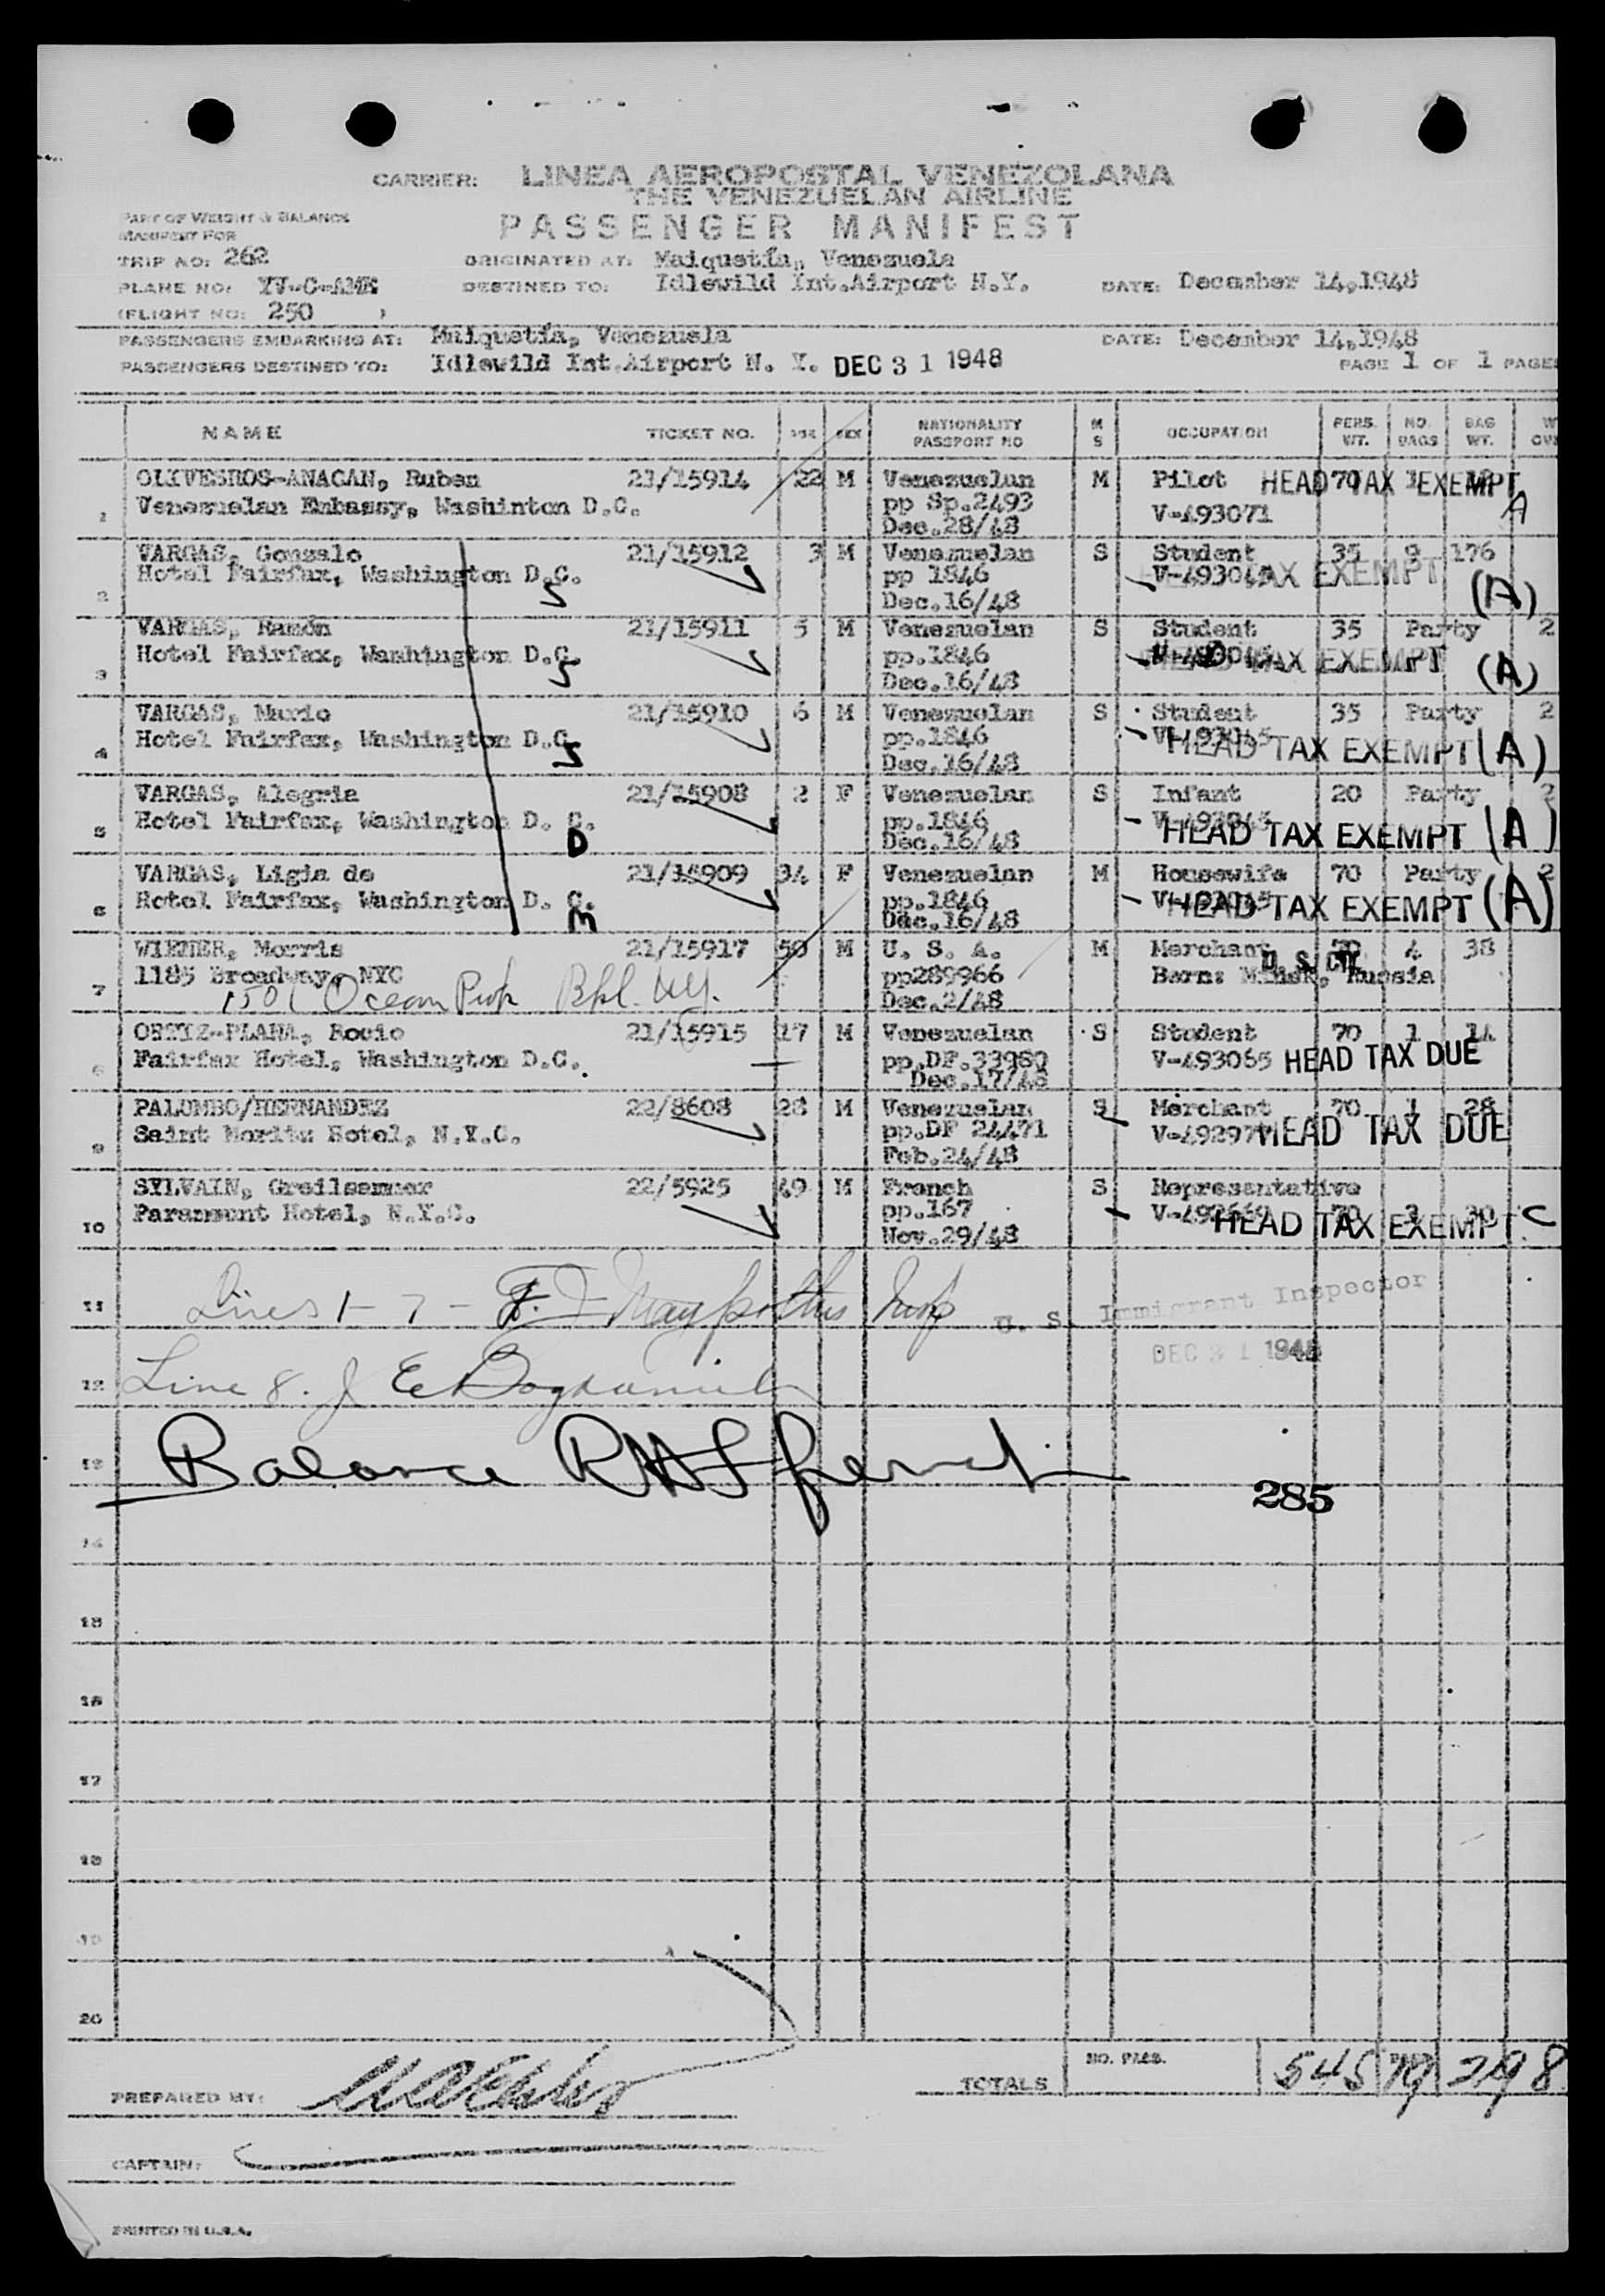 CARRIER: LINEA AEROPOSTAL VENEZOLANA
THE VENEZUELAN AIRLINE
PART OF WEIGHT & BALANCE
MANIFEST FOR
PASSENGER MANIFEST
TRIP NO: 262 ORIGINATED AT: Maiquetía, Venezuela
PLANE NO: YV-C-AME DESTINED TO: Idlewild Int.Airport N.Y. DATE: December 14,1948
(FLIGHT NO: 250 )
PASSENGERS EMBARKING AT: Maiquetía, Venezuela DATE: December 14,1948
PASSENGERS DESTINED TO: Idlewild Int.Airport N. Y. DEC 31 1948 PAGE 1 OF 1 PAGES
NAME TICKET NO. AGE SEX NATIONALITY PASSPORT NO M S OCCUPATION PERS. WT. NO. BAGS BAG WT.
1 OLIVESROS-ANACAN, Ruben 21/15914 22 M Venezuelan M Pilot 70 1 HEAD TAX EXEMPT
Venezuelan Embassy, Washinton D.C. pp Sp.2493 V-493071 A
Dec.28/48
2 VARGAS, Gonzalo 21/15912 3 M Venezuelan S Student 35 9 176
Hotel Fairfax, Washington D.C. S pp 1846 HEAD TAX EXEMPT (A)
Dec.16/48
3 VARGAS, Ramón 21/15911 5 M Venezuelan S Student 35 Party 2
Hotel Fairfax, Washington D.C. S pp.1846 HEAD TAX EXEMPT (A)
Dec.16/48
4 VARGAS, Mario 21/15910 6 M Venezuelan S Student 35 Party 2
Hotel Fairfax, Washington D.C. S pp.1846 HEAD TAX EXEMPT (A)
Dec.16/48
5 VARGAS, Alegria 21/15908 2 F Venezuelan S Infant 20 Party 2
Hotel Fairfax, Washington D. C. D pp.1846 HEAD TAX EXEMPT (A)
Dec.16/48
6 VARGAS, Ligia de 21/15909 34 F Venezuelan M Housewife 70 Party 2
Hotel Fairfax, Washington D. C. M pp.1846 HEAD TAX EXEMPT (A)
Dec.16/48
7 WIENER, Morris 21/15917 50 M U. S. A. M Merchant 70 4 38
1185 Broadway, NYC pp289966 Born: Minsk, Russia
1501 Ocean Pwk Bkl. N.Y. Dec.2/48
8 ORTIZ-PLANA, Rocio 21/15915 17 M Venezuelan S Student 70 1 14
Fairfax Hotel, Washington D.C. pp.DF.33980 V-493065 HEAD TAX DUE
Dec.17/48
9 PALUMBO/HERNANDEZ 22/8608 28 M Venezuelan S Merchant 70 1 28
Saint Moritz Hotel, N.Y.C. pp.DF 24471 HEAD TAX DUE
Feb.24/48
10 SYLVAIN, Greilsammer 22/5925 49 M French S Representative
Paramount Hotel, N.Y.C. pp.167 HEAD TAX EXEMPT C
Nov.29/48
11 Lines 1 - 7 - Insp U. S. Immigrant Inspector
DEC 31 1948
12 Line 8.
13 Balance
285
14
15
16
17
18
19
20
NO. PASS.
TOTALS 545 19 298
PREPARED BY:
CAPTAIN:
PRINTED IN U.S.A.